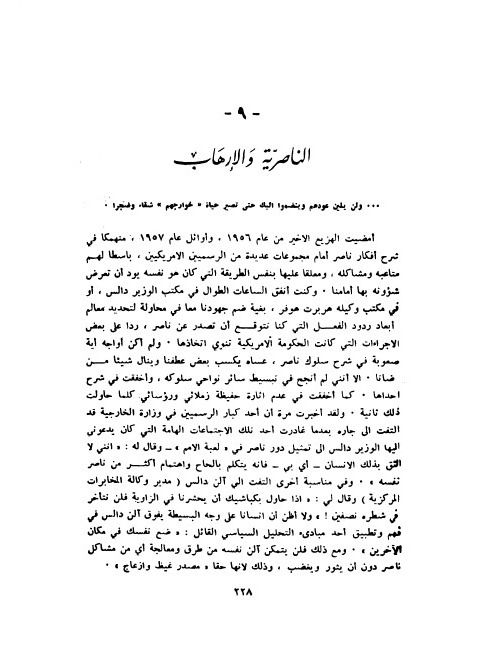 - ٩ -
الناصرية والإرهاب
٠٠٠ ولن يلين عودهم وينضموا اليك حتى تصير حياة « خوارجهم » شقاء وضجرا ٠
أمضيت الهزيع الاخير من عام ١٩٥٦ ، وأوائل عام ١٩٥٧ ، منهمكا في
شرح أفكار ناصر أمام مجموعات عديدة من الرسميين الامريكيين ، باسطا لهم
متاعبه ومشاكله ، ومعلقا عليها بنفس الطريقة التي كان هو نفسه يود أن تعرض
شؤونه بها أمامنا ٠ وكنت أنفق الساعات الطوال في مكتب الوزير دالس ، أو
في مكتب وكيله هربرت هوفر ، بغية ضم جهودنا معا في محاولة لتحديد معالم
أبعاد ردود الفعل التي كنا نتوقع أن تصدر عن ناصر ، ردا على بعض
الاجراءات التي كانت الحكومة الامريكية تنوي اتخاذها ٠ ولم أكن أواجه أية
صعوبة في شرح سلوك ناصر ، عساه يكسب بعض عطفنا وينال شيئا من
ضانا ٠ الا أنني لم أنجح في تبسيط سائر نواحي سلوكه ، وأخفقت في شرح
احداها ٠ كما أخفقت في عدم اثارة حفيظة زملائي ورؤسائي كلما حاولت
ذلك ثانية ٠ ولقد اخبرت مرة أن أحد كبار الرسميين في وزارة الخارجية قد
التفت الى جاره بعدما غادرت أحد تلك الاجتماعات الهامة التي كان يدعوني
اليها الوزير دالس الى تمثيل دور ناصر في « لعبة الامم » وقال له : « انني لا
اثق بذلك الانسان ــ أي بي ــ فانه يتكلم بالحاح واهتمام أكثر من ناصر
نفسه » ٠ وفي مناسبة أخرى التفت الي آلن دالس ( مدير وكالة المخابرات
المركزية ) وقال لي : « اذا حاول بكباشيك أن يحشرنا في الزاوية فلن نتأخر
في شطره نصفين ! » ولا أظن أن انسانا على وجه البسيطة يفوق آلن دالس في
فهم وتطبيق أحد مبادىء التحليل السياسي القائل : « ضع نفسك في مكان
الآخرين » ٠ ومع ذلك فلن يتمكن آلن نفسه من طرق ومعالجة أي من مشاكل
ناصر دون أن يثور ويغضب ، وذلك لانها حقا « مصدر غيظ وازعاج » ٠
٢٢٨